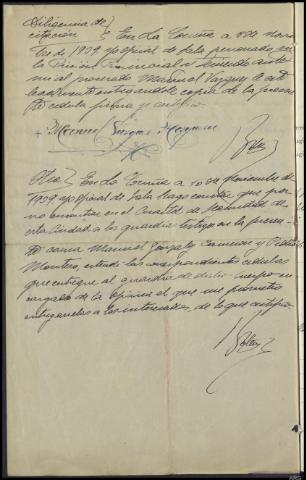 Diligencia de
citación } En La Coruña a 8 de
de 1939 yo oficial de Sala personado en
la Prisión Provincial y teniendo ante
mi al procesado Manuel Vazquez le cité
entregandole copia de la
cédula firma y certifico.
Manuel Vazquez
Otra } En La Coruña a 10 de Noviembre de
1939 yo oficial de Sala hago constar que por
no encontrar en el Cuartel de Seguridad de
esta Ciudad a los guardias testigos en la presen-
te causa Manuel Gonzalez y
Montero, extendí las correspondientes cedulas
que entregué al guardia de dicho cuerpo en-
cargado de la oficina el que me prometió
entregarselas a los interesados, de lo que certifico.